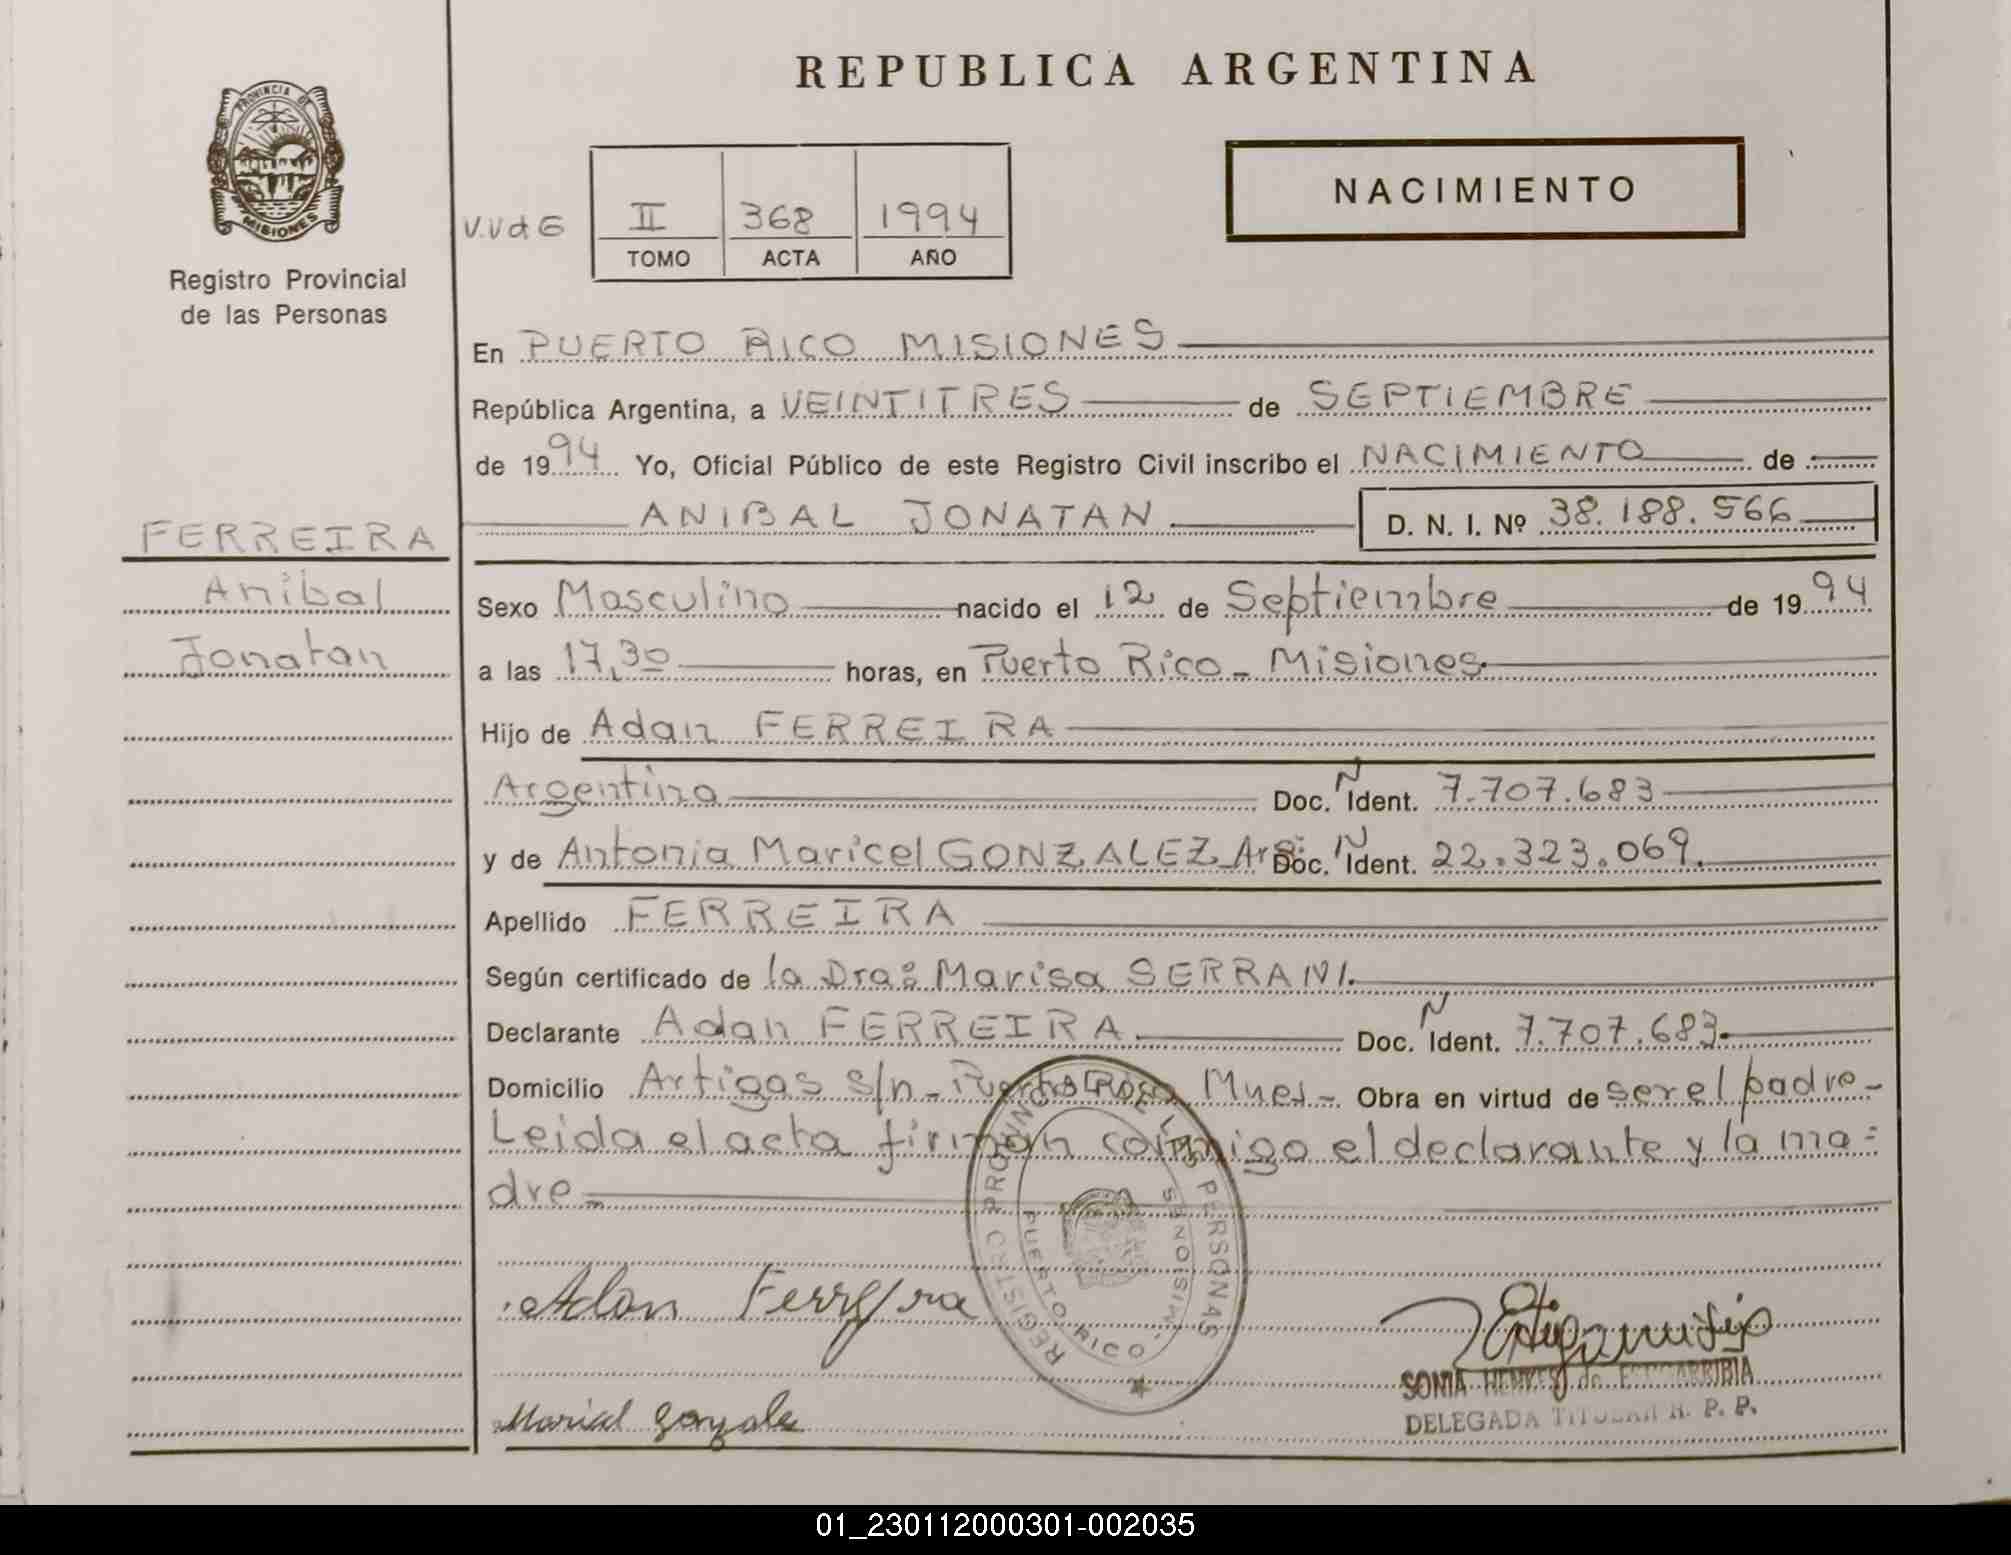 REPUBLICA ARGENTINA
PROVINCIA DE
MISIONES
Registro Provincial
de las Personas
NACIMIENTO
V.V d G
II 368 1994
TOMO ACTA AÑO
En PUERTO RICO MISIONES
República Argentina, a VEINTITRES de SEPTIEMBRE
de 1994 Yo, Oficial Público de este Registro Civil inscribo el NACIMIENTO de
ANIBAL JONATAN D. N. I. Nº 38.188.566
FERREIRA
Anibal
Jonatan
Sexo Masculino nacido el 12 de Septiembre de 1994
a las 17,30 horas, en Puerto Rico - Misiones
Hijo de Adan FERREIRA
Argentina Doc. N Ident. 7.707.683
y de Antonia Maricel GONZALEZ Arg. Doc. N Ident. 22.323.069.
Apellido FERREIRA
Según certificado de la Dra: Marisa SERRANI.
Declarante Adan FERREIRA Doc. N Ident. 7.707.683.
Domicilio Artigas s/n - Puerto Rico Mnes - Obra en virtud de ser el padre -
Leida el acta firman conmigo el declarante y la ma=
dre -
REGISTRO PROVINCIAL DE LAS PERSONAS
PUERTO RICO - MISIONES
Adan Ferreira
SONIA HENKES de ESTIGARRIBIA
DELEGADA TITULAR R. P. P.
Maricel Gonzalez
01_230112000301-002035